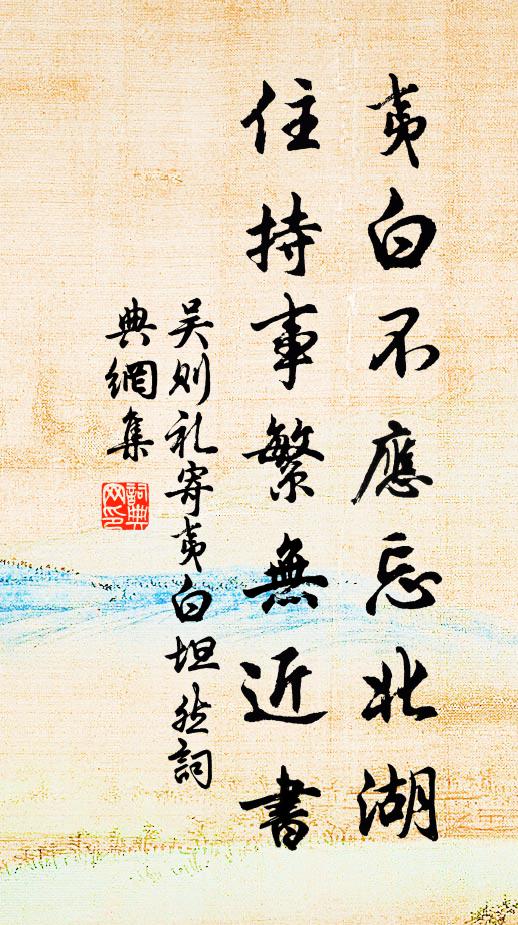 夷白不應忘北湖
住持事繁無近書
吴则礼寄夷白坦然詞
典網集
詞典
网印